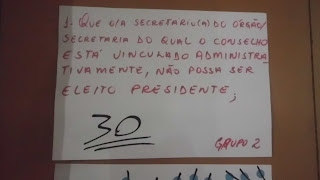 1. QUE O/A SECRETARIO(A) DO ÓRGÃO/
SECRETARIA DO QUAL O CONSELHO
ESTÁ VINCULADO ADMINISTRA
TIVAMENTE, NÃO POSSA SER
ELEITO PRESIDENTE;
30
GRUPO 2